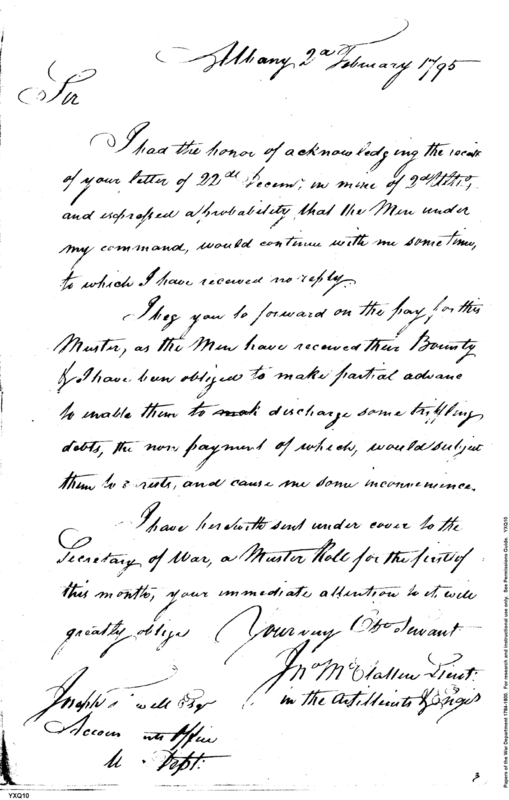 Albany 2d February 1795
Sir
I had the honor of acknowledging the receit
of your letter of 22nd Decemr, in mine of 2nd
and expressed a probability that the Men under
my command, would continue with me sometime,
to which I have received no reply.
I beg you to forward on the pay for this
Muster, as the Men have received their Bounty
& I have been obliged to make partial advanc
to enable them to mak discharge some triffling
debts, the non payment of which, would subject
them to rests, and cause me some inconvenience.
I have herewith sent under cover to the
Secretary of War, a Muster Roll for the first of
this month, your immediate attention to it will
greatly oblige Your very Obt Servant
Jno McClallen Lieut.
in the Artillerists & Engrs
Joseph well Esqr
Accom nts Office
Dept.
YXQ10
Papers of the War Department 1784-1800. For research and instructional use only. See Permissions Guide. YXQ10